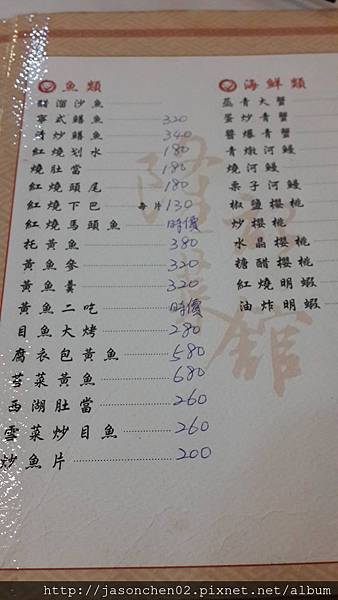 魚類
醋溜沙魚
寧式鱔魚 320
清炒鱔魚 340
紅燒划水 180
燒肚當 180
紅燒頭尾 180
紅燒下巴 每片130
紅燒馬頭魚 時價
托黃魚 380
黃魚參 320
黃魚羹 320
黃魚二吃 時價
目魚大烤 280
腐衣包黃魚 580
苔菜黃魚 680
西湖肚當 260
雪菜炒目魚 260
炒魚片 200
海鮮類
蒸青大蟹
蛋炒青蟹
醬爆青蟹
青燉河鰻
燒河鰻
栗子河鰻
椒鹽櫻桃
炒櫻桃
水晶櫻桃
糖醋櫻桃
紅燒明蝦
油炸明蝦
隆
館
http://jasonchen02.pixnet.net/album